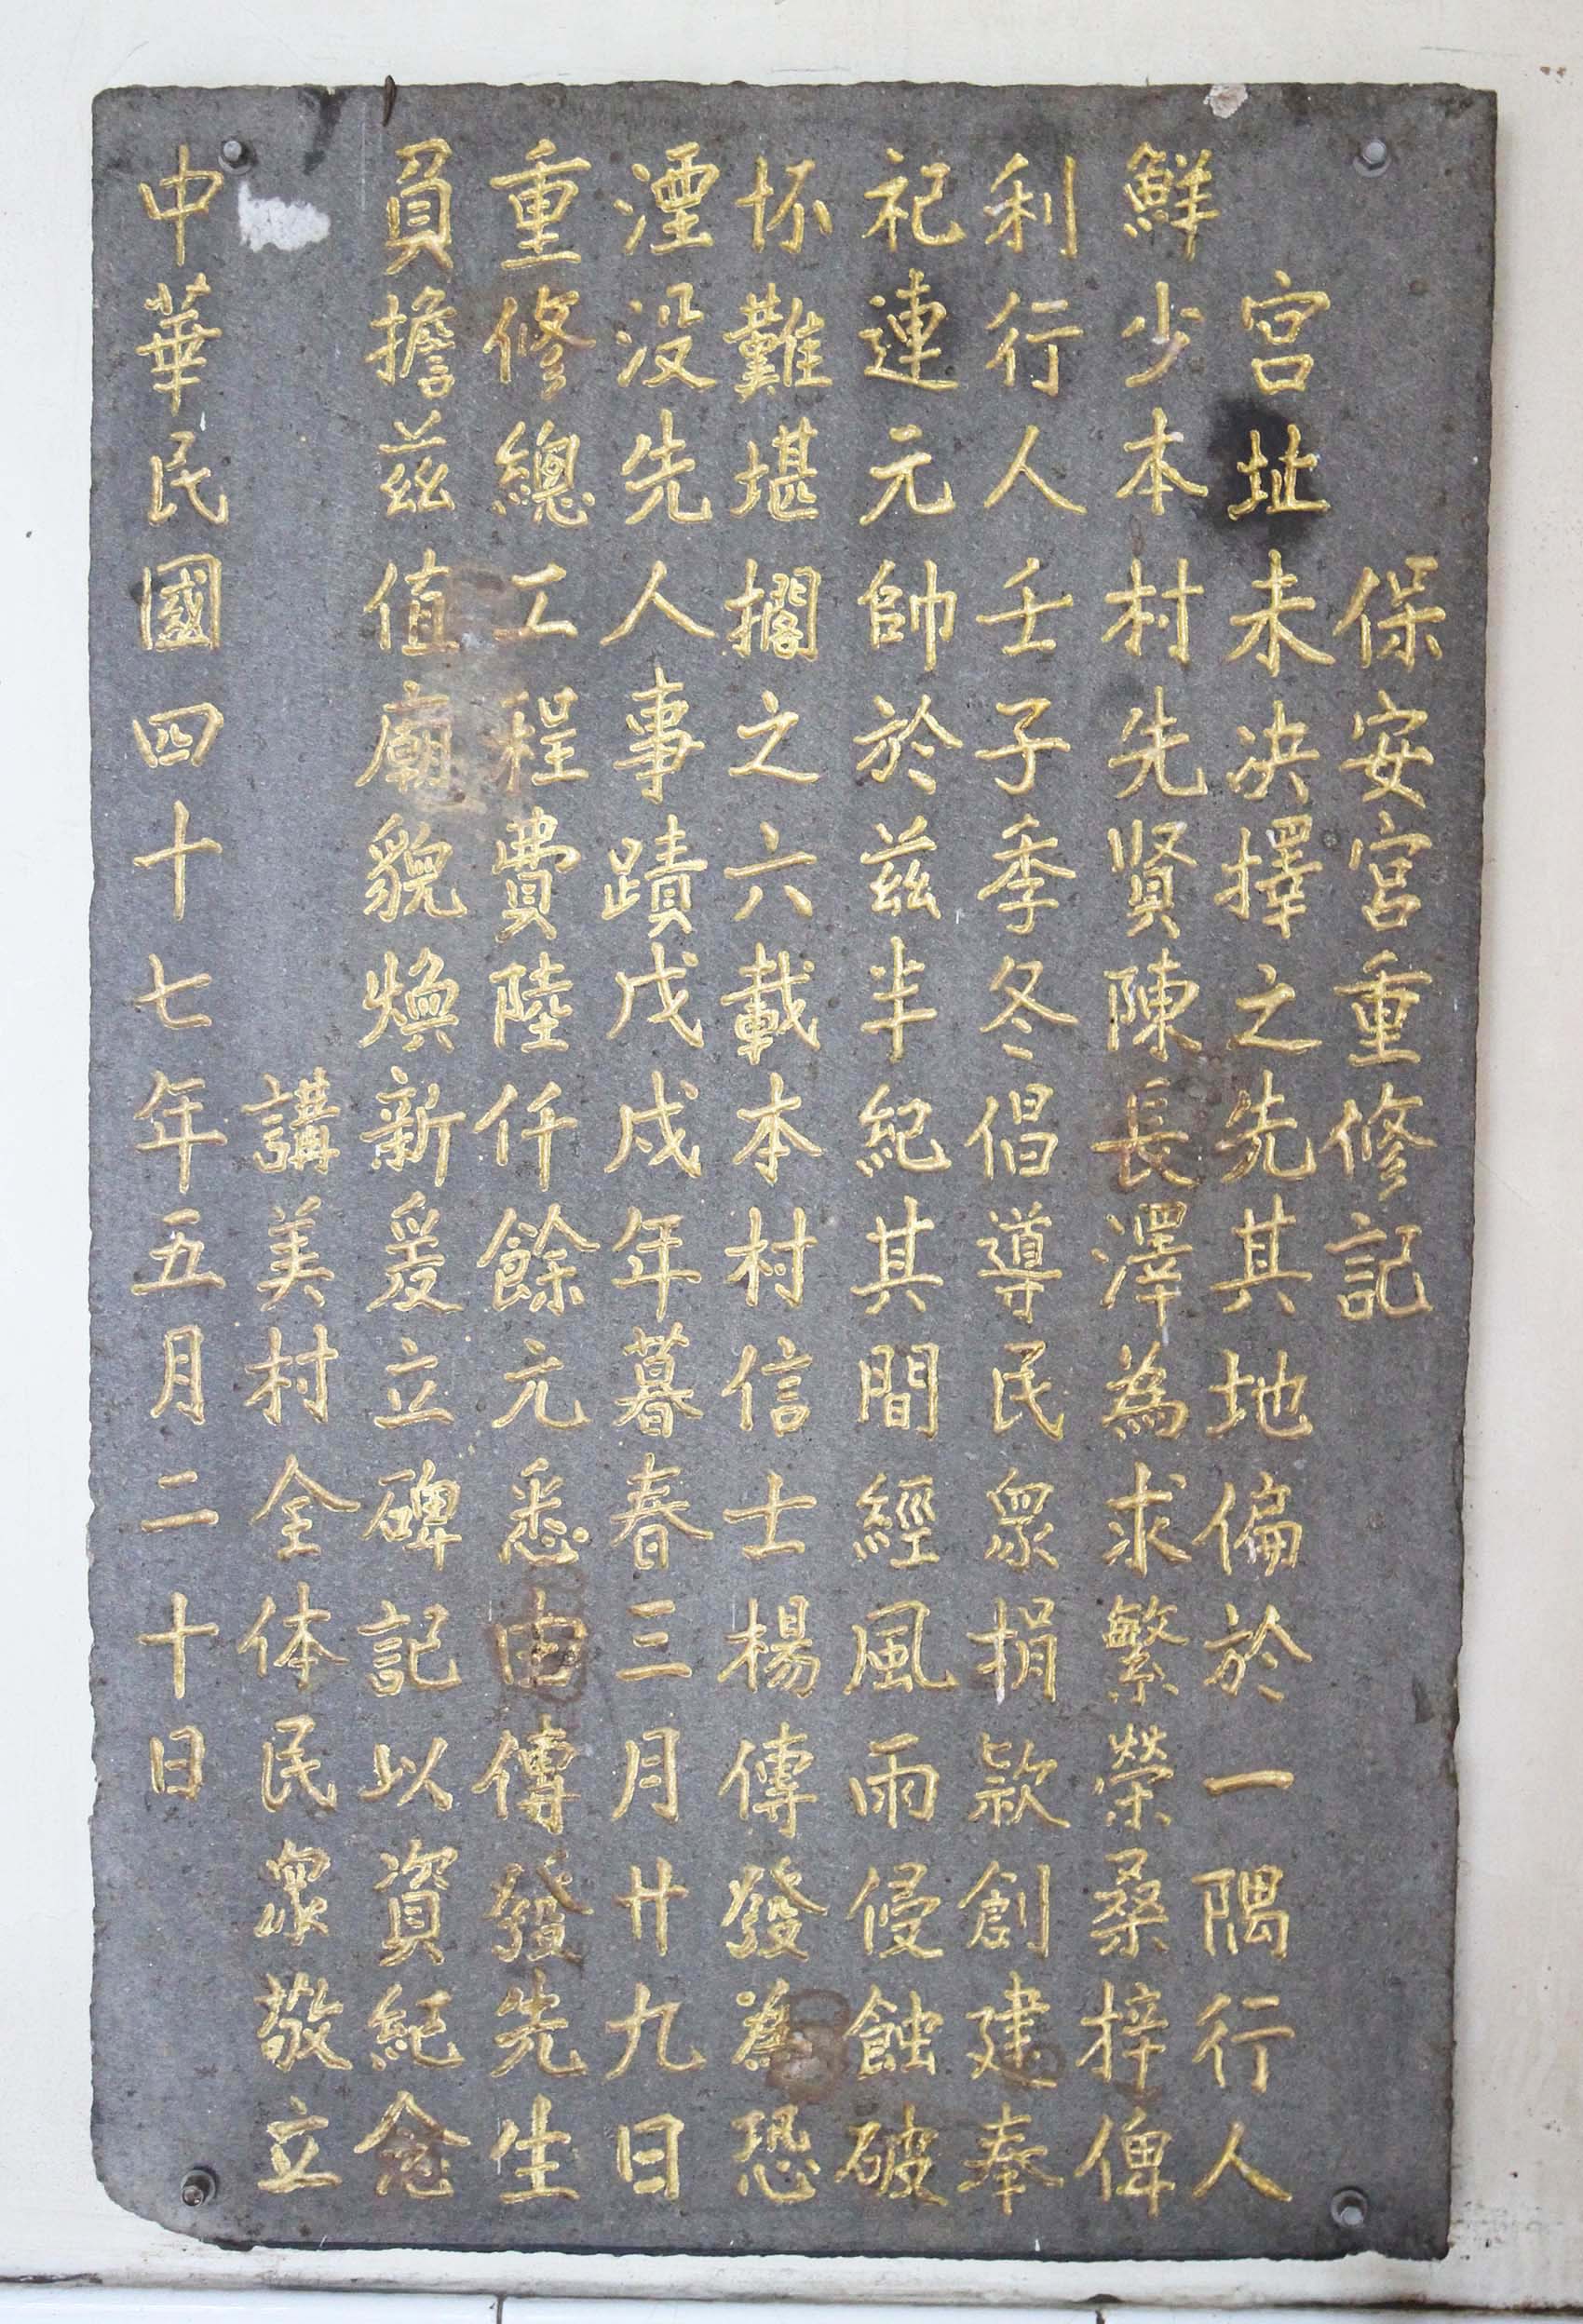 保安宮重修記
宮址未决擇之先其地偏於一隅行人
鮮少本村先賢陳長澤為求繁榮桑梓俾
利行人壬子季冬倡導民眾捐欵創建奉
祀連元帥於茲半紀其間經風雨侵蝕破
坏難堪擱之六載本村信士楊傳發為恐
湮没先人事蹟戊戍年暮春三月廿九日
重修總工程費陸仟餘元悉由傳發先生
負擔茲值廟貌煥新爰立碑記以資紀念
講美村全体民眾敬立
中華民國四十七年五月二十日